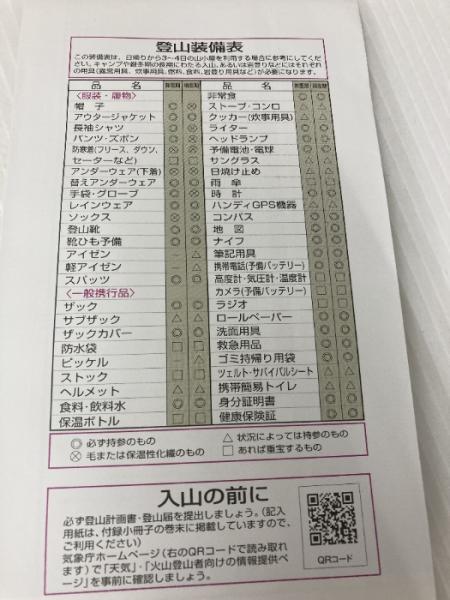 登山装備表
この装備表は、日帰りから3〜4日の山小屋を利用する場合に参考にしてください。
の用具(露営用具、炊事用具、燃料、食料、岩登り用具など)が必要になります。
品 名
〈服装・履物〉
帽 子
アウタージャケット
長袖シャツ
パンツ・ズボン
防寒着(フリース、ダウン、
セーターなど)
アンダーウェア(下着)
替えアンダーウェア
手袋・グローブ
レインウェア
ソックス
登山靴
靴ひも予備
アイゼン
軽アイゼン
スパッツ
〈一般携行品〉
ザック
サブザック
ザックカバー
防水袋
ピッケル
ストック
ヘルメット
食料・飲料水
保温ボトル
品 名
非常食
ストーブ・コンロ
クッカー(炊事用具)
ライター
ヘッドランプ
予備電池・電球
サングラス
日焼け止め
雨 傘
時 計
ハンディGPS機器
コンパス
地 図
ナイフ
筆記用具
携帯電話(予備バッテリー)
高度計・気圧計・温度計
カメラ(予備バッテリー)
ラジオ
ロールペーパー
洗面用具
救急用品
ゴミ持帰り用袋
ツェルト・サバイバルシート
携帯簡易トイレ
身分証明書
健康保険証
◎ 必ず持参のもの
△ 状況によっては持参のもの
⊗ 毛または保温性化繊のもの
□ あれば重宝するもの
入山の前に
必ず登山計画書・登山届を提出しましょう。(記入
用紙は、付録小冊子の巻末に掲載していますので、
ご利用ください)
気象庁ホームページ(右のQRコードで読み取れ
ます)で「天気」・「火山登山者向けの情報提供ペ
ージ」を事前に確認しましょう。
QRコード